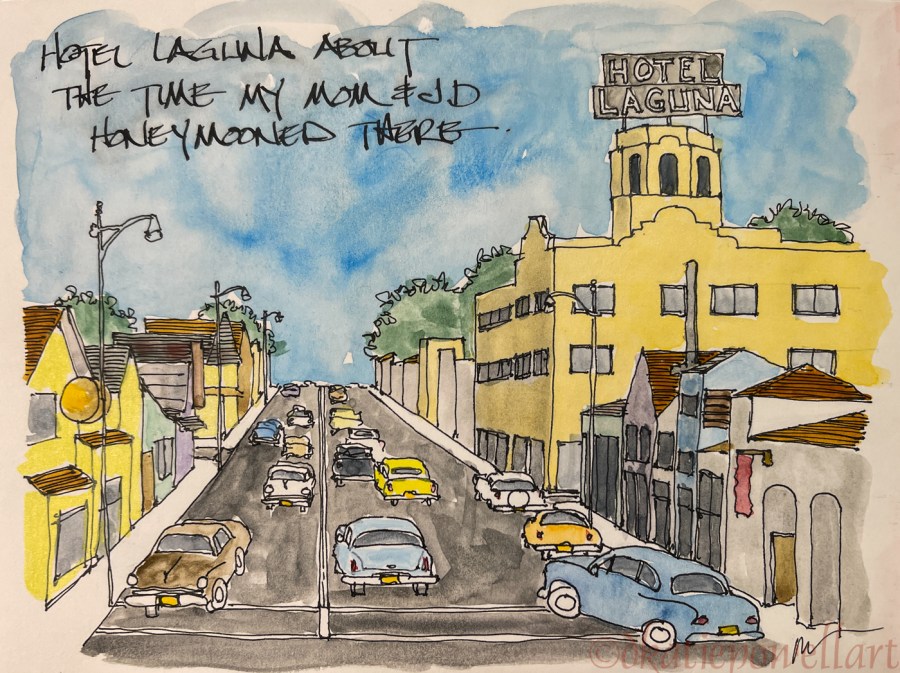 HOTEL LAGUNA ABOUT
THE TIME MY MOM & JD
HONEYMOONED THERE.
HOTEL
LAGUNA
©katiepowellart